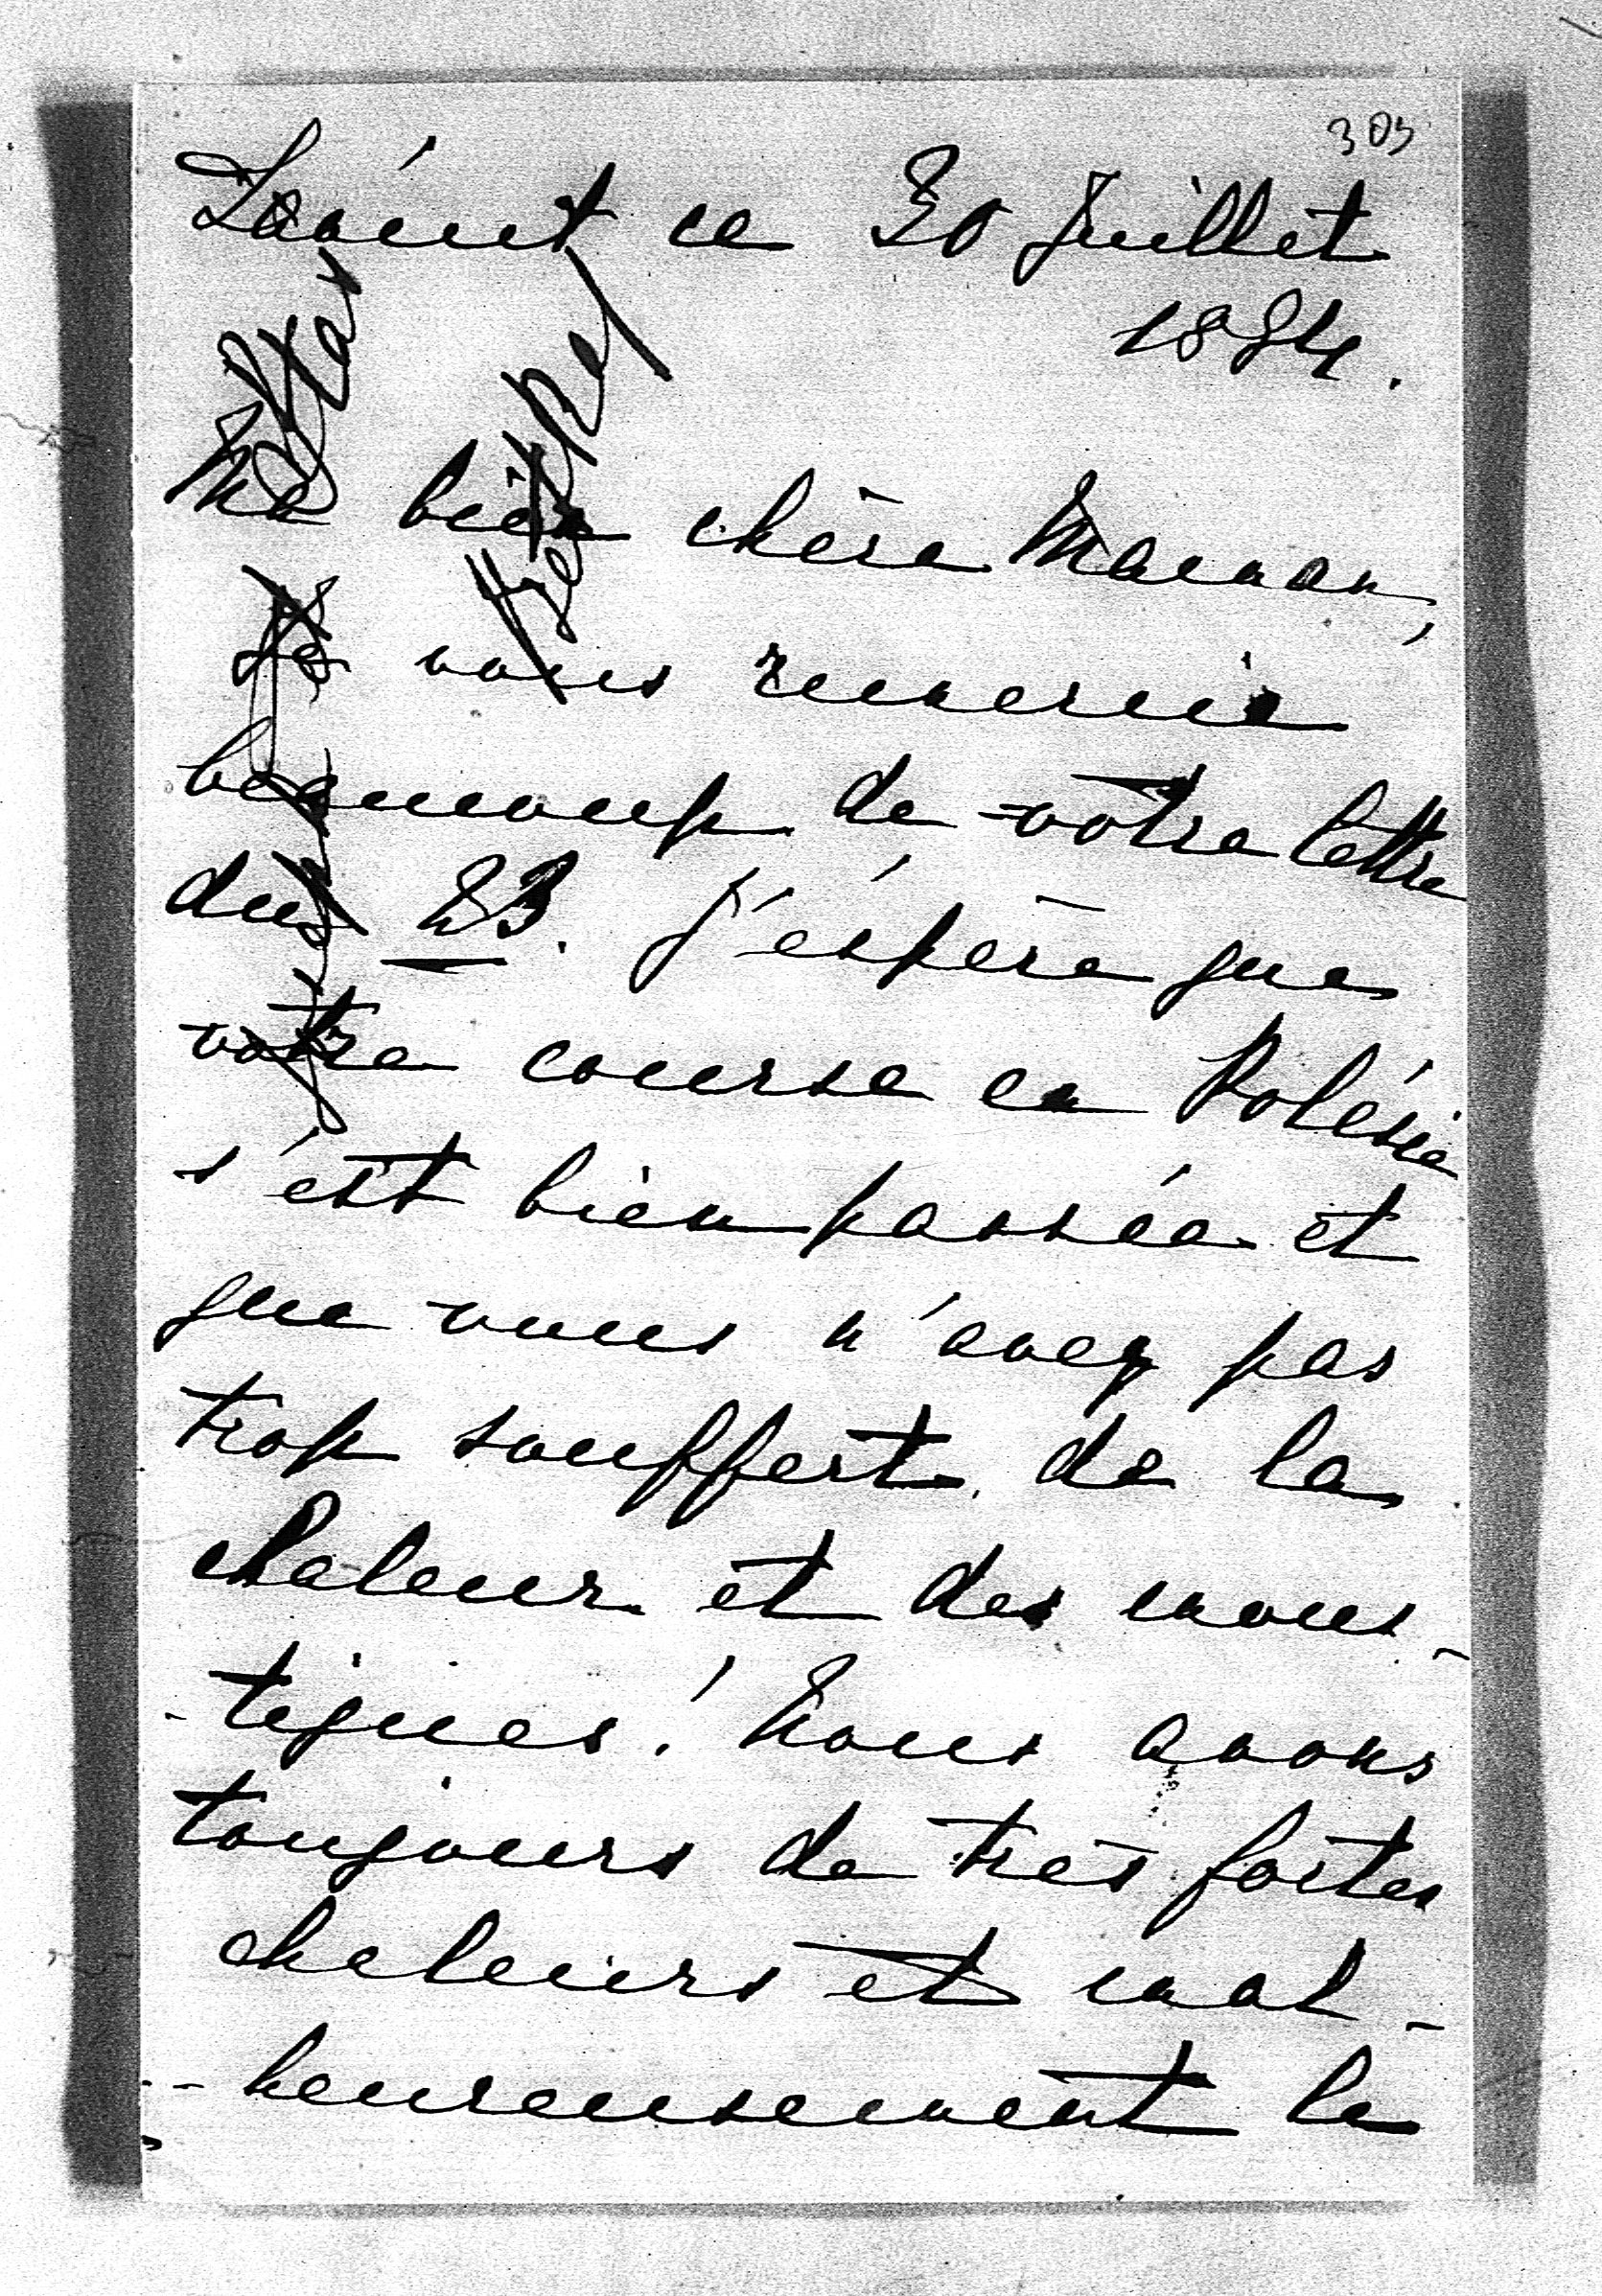 Łańcut ce 30 Juillet
1884.
Ma bien chère Maman,
Je vous remercie
beaucoup de votre lettre
du 23. J'éspère que
votre course en Polésie
s'est bien passée et
que vous n'avez pas
trop souffert de la
chaleur et des mous-
-tiques! Nous avons
toujours de très fortes
chaleurs et mal-
-heureusement le